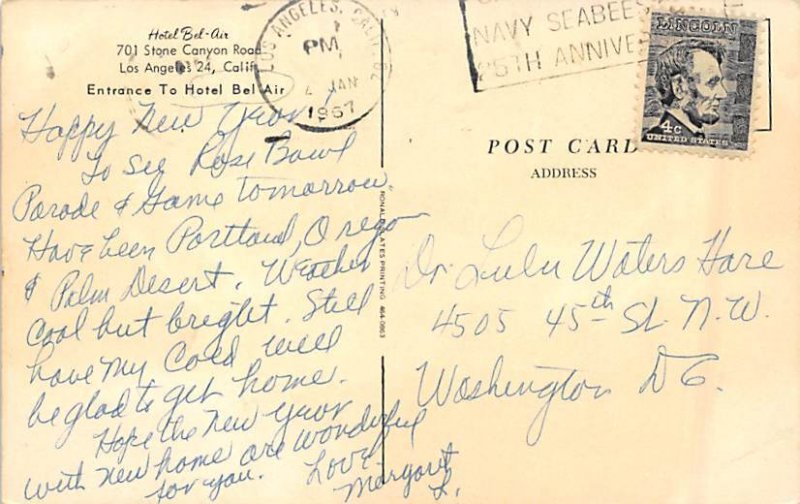 Hotel Bel-Air
701 Stone Canyon Road
Los Angeles 24, Calif.
Entrance To Hotel Bel Air
LOS ANGELES, CALIF.
PM
JAN
1967
NAVY SEABEES
25TH ANNIVE
LINCOLN
4c
UNITED STATES
POST CARD
ADDRESS
Happy New Year!
To see Rose Bowl
Parade & Game tomorrow
Have been Portland, Oregon
& Palm Desert. Weather
cool but bright. Still
have my cold will
be glad to get home.
Hope the New Year
with new home are wonderful
for you. Love
Margaret
L.
Dr. Lulu Waters Hare
4505 45th St. N.W.
Washington D C.